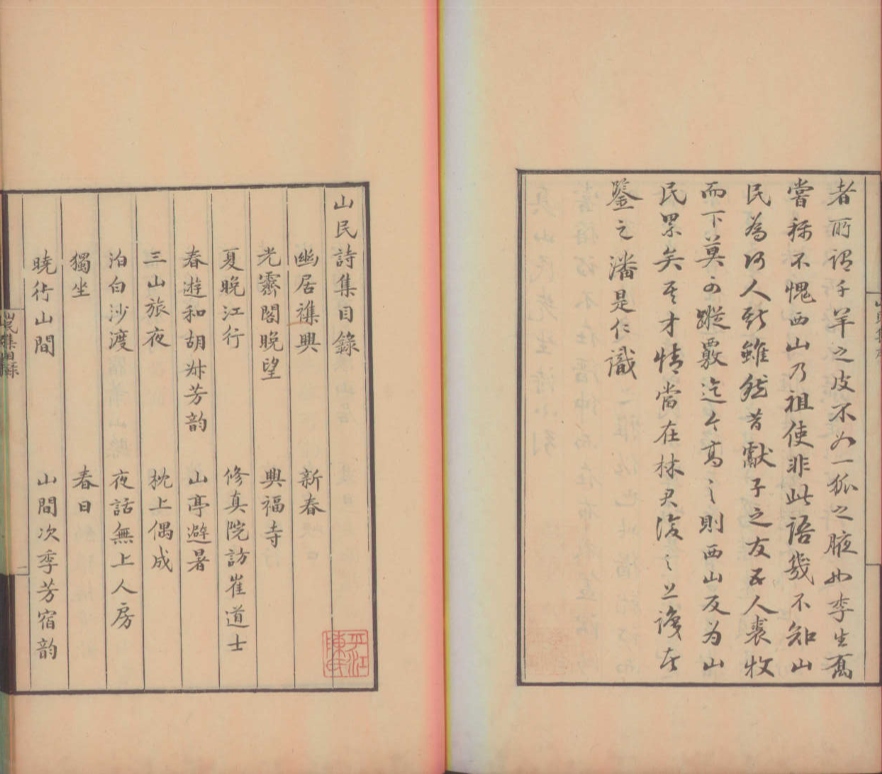 者所謂千羊之皮不如一狐之腋也李生喬
嘗稱不愧西山乃祖使非此語幾不知山
民為何人斯雖然昔獻子之友五人裘牧
而下莫可蹤覈迄今高之則西山反為山
民累矣其才情當在林君復之上識者
鑒之潘是仁識
山民詩集目錄
幽居襍興
新春
光霽閣晚望
興福寺
夏晚江行
修真院訪崔道士
春遊和胡叔芳韵
山亭避暑
三山旅夜
枕上偶成
泊白沙渡
夜話無上人房
獨坐
春日
曉行山間
山間次季芳宿韵
平江
陳氏